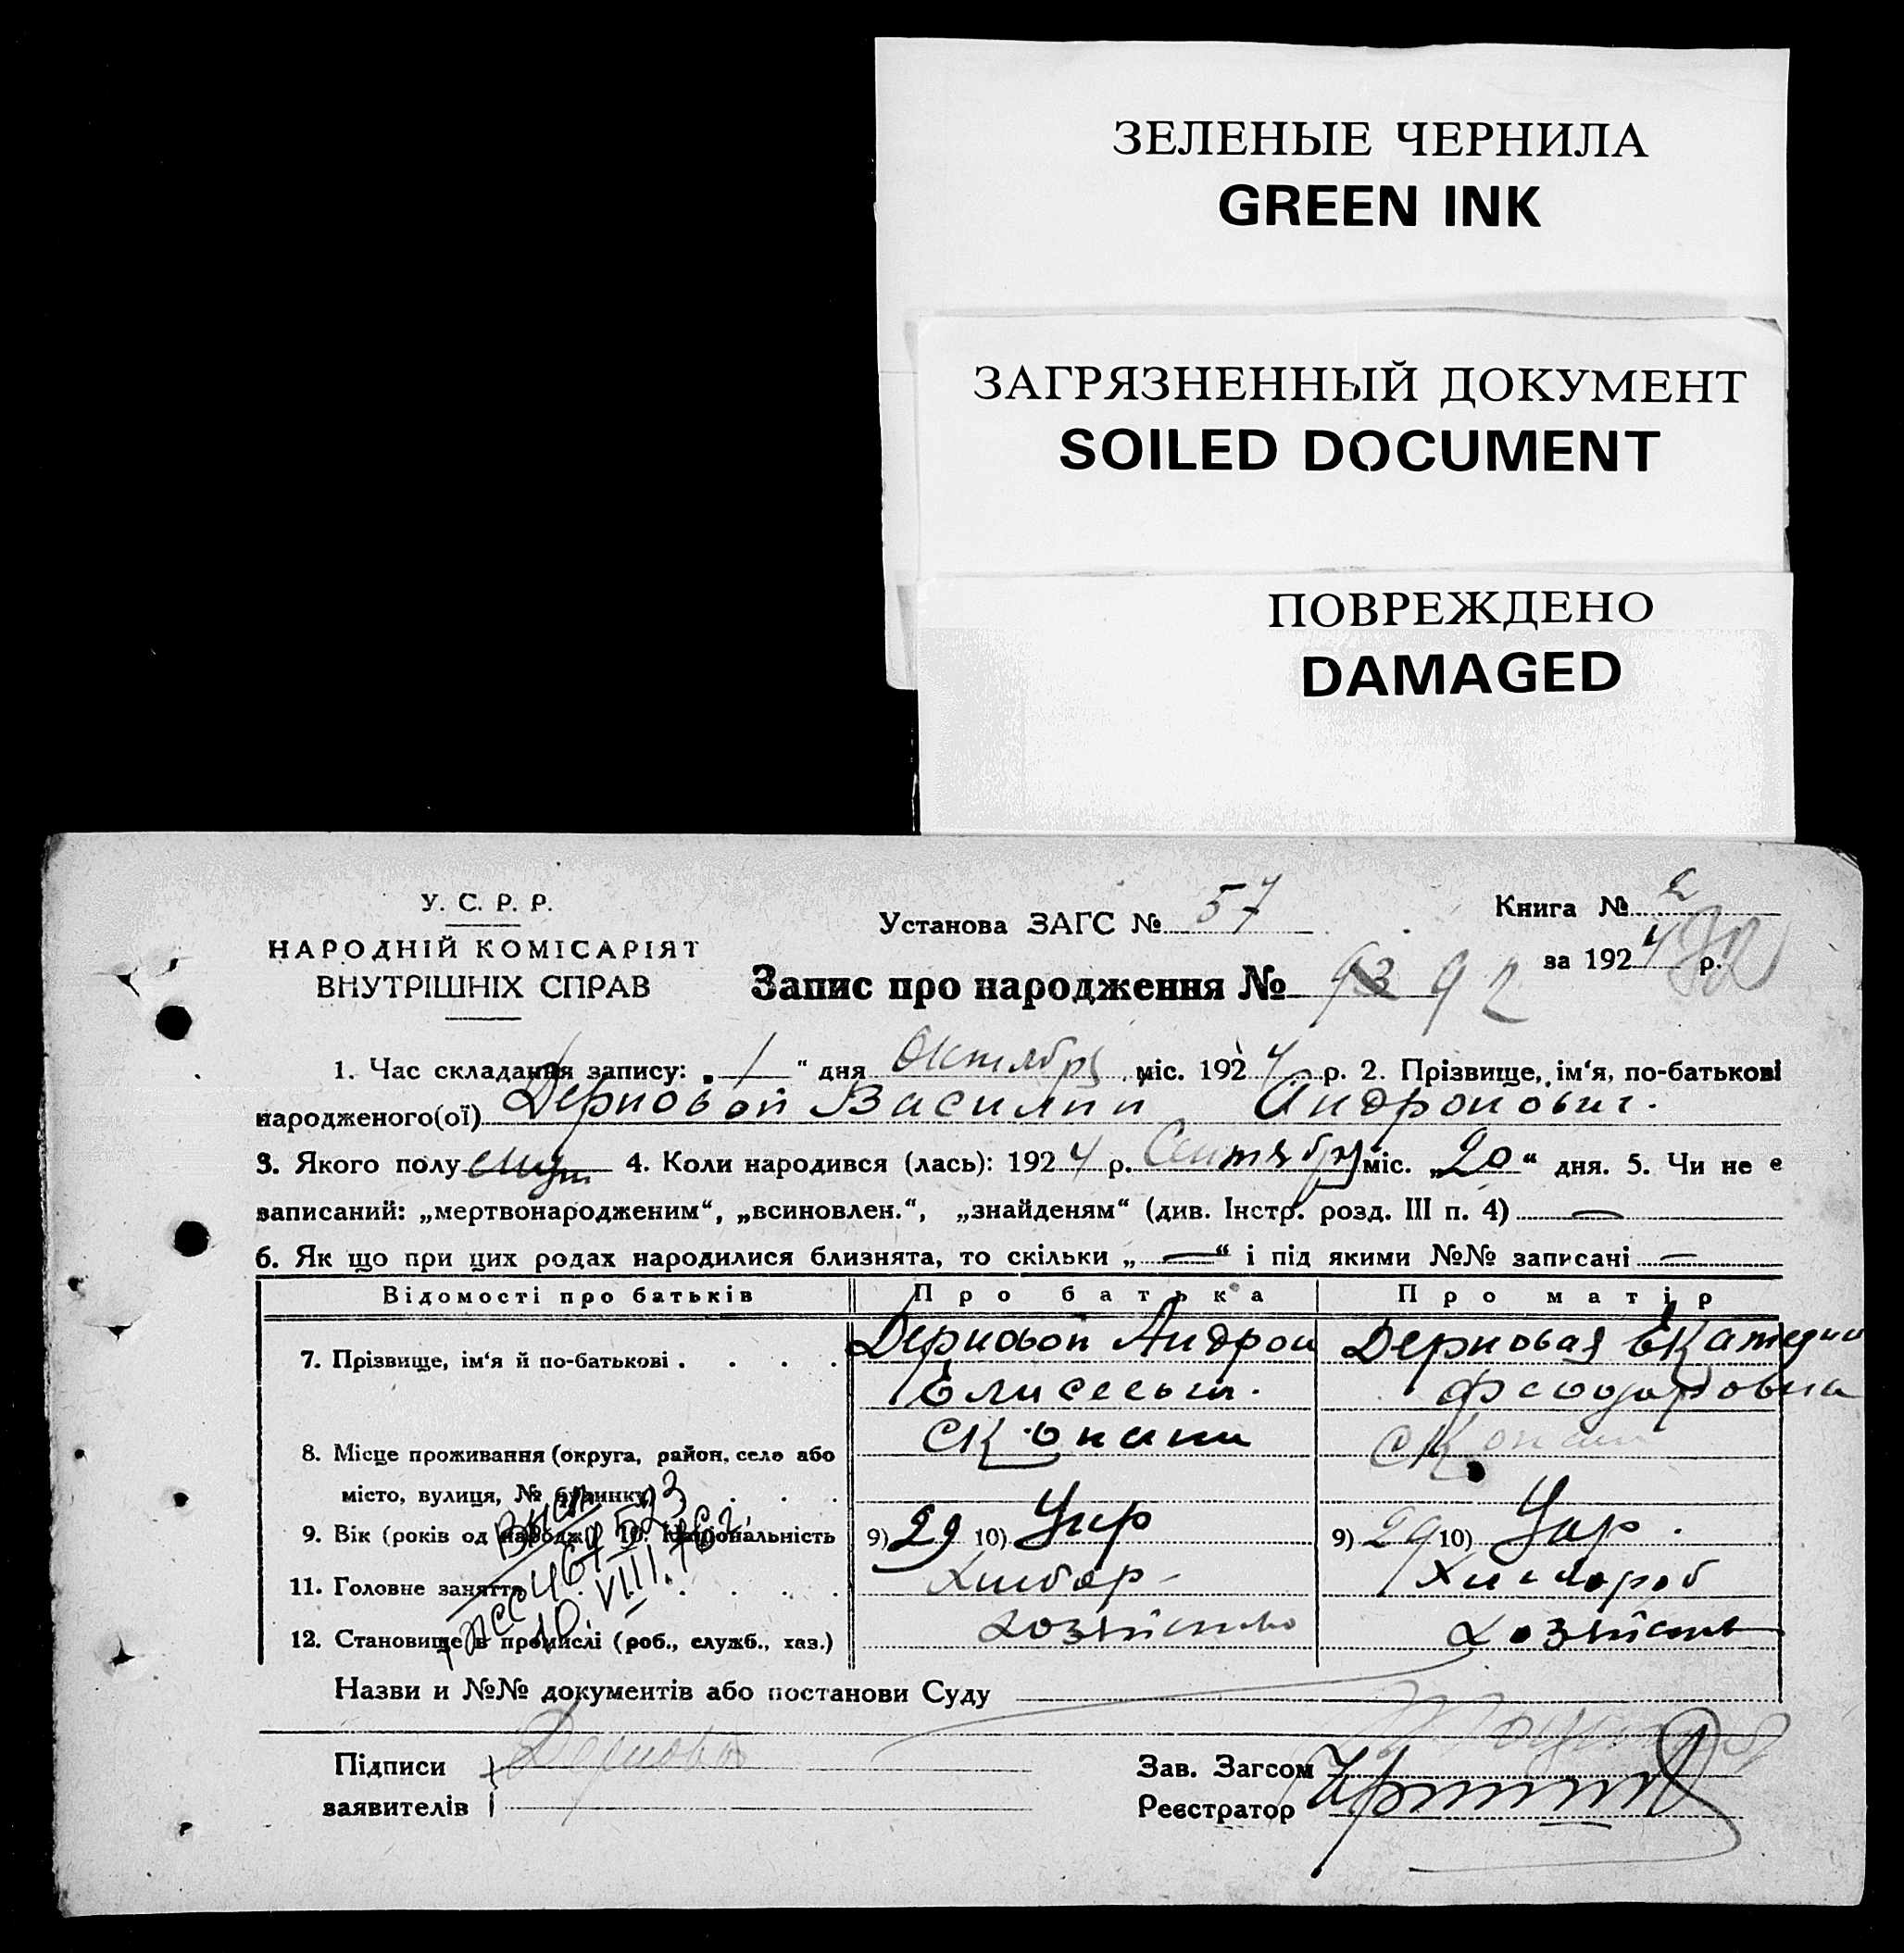 ЗЕЛЕНЫЕ ЧЕРНИЛА
GREEN INK
ЗАГРЯЗНЕННЫЙ ДОКУМЕНТ
SOILED DOCUMENT
ПОВРЕЖДЕНО
DAMAGED
У. С. Р. Р.
НАРОДНІЙ КОМІСАРІЯТ
ВНУТРІШНІХ СПРАВ
Установа ЗАГС № 57
Книга № 2
за 1924 р.
Запис про народження № 93 92
1. Час складання запису: „ 1 “ дня Октября міс. 1924 р. 2. Прізвище, ім‘я, по-батькові
народженого(ої) Дерновой Василий Андронович.
3. Якого полу муж 4. Коли народився (лась): 1924 р. Сентября міс. „20“ дня. 5. Чи не е
записаний: „мертвонародженим“, „всиновлен.“, „знайденям“ (див. Інстр. розд. III п. 4) —
6. Як що при цих родах народилися близнята, то скільки „ — “ і під якими №№ записані —
Відомості про батьків Про батька Про матір
7. Прізвище, ім‘я й по-батькові . . . . Дерновой Андрон Дерновая Екатерин
Елисеевич. Феодоровна
8. Місце проживання (округа, район, село або
місто, вулиця, № будинку) . . .
9. Вік (років од народж.) 10. Національність 9) 29 10) Укр 9) 29 10) Укр.
11. Головне заняття . . . . Хлібор- Хлибороб
12. Становище в промислі (роб., служб., хаз.) хозяйство хозяйств
467523
10.VIII.
Назви и №№ документів або постанови Суду
Підписи
заявителів
Дерновой
Зав. Загсом
Реєстратор